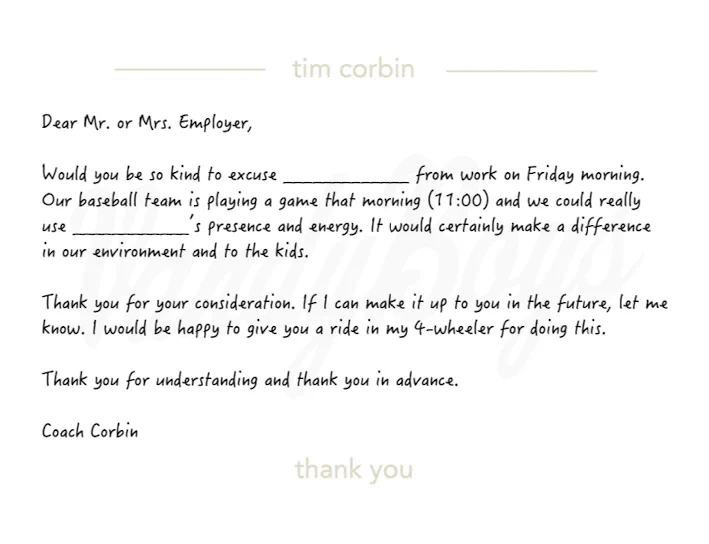 tim corbin
Dear Mr. or Mrs. Employer,
Would you be so kind to excuse _____________ from work on Friday morning.
Our baseball team is playing a game that morning (11:00) and we could really
use ____________'s presence and energy. It would certainly make a difference
in our environment and to the kids.
Thank you for your consideration. If I can make it up to you in the future, let me
know. I would be happy to give you a ride in my 4-wheeler for doing this.
Thank you for understanding and thank you in advance.
Coach Corbin
thank you
VandyBoys